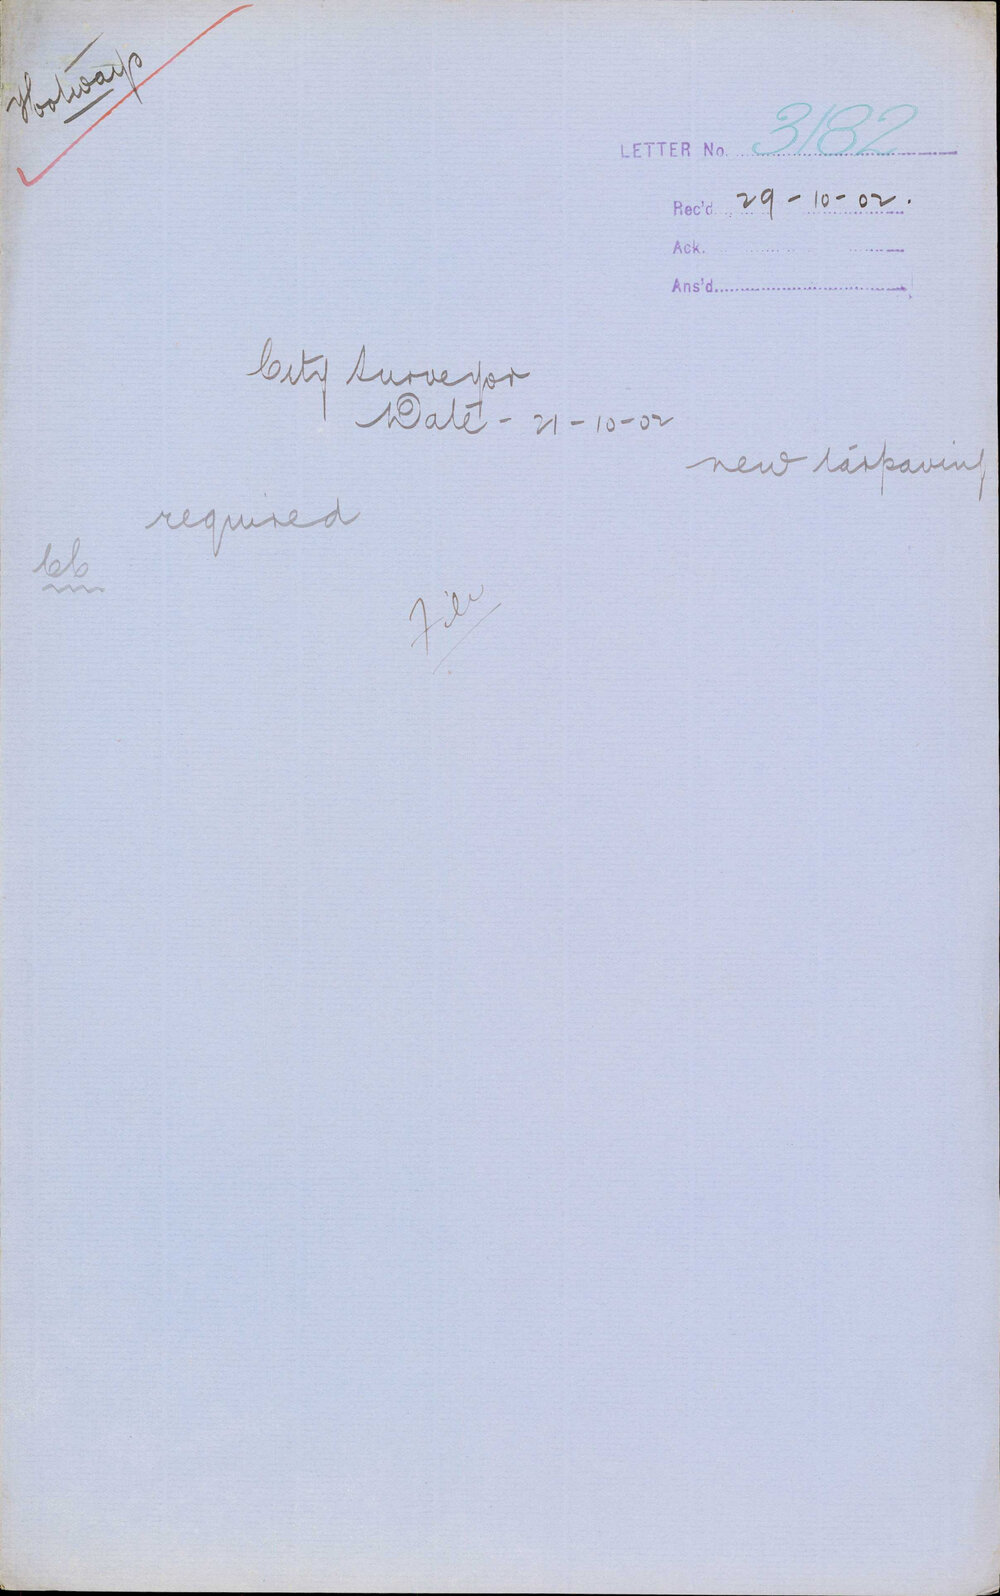 Footways
LETTER No. 3182
Rec'd. 29-10-02.
Ack.
Ans'd.
City Surveyor
Date - 21-10-02
new tarpaving
required
File